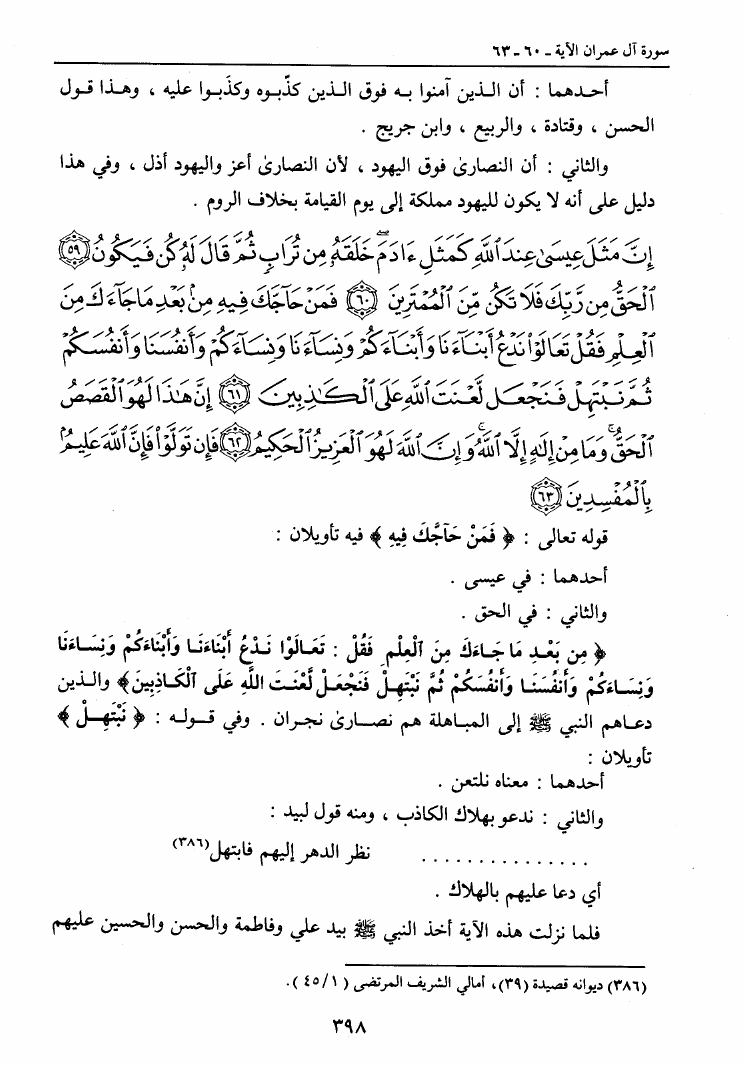 سورة آل عمران الآية ـ ٦٠ ـ ٦٣
أحدهما : أن الذين آمنوا به فوق الذين كذّبوه وكذَبوا عليه ، وهذا قول
الحسن ، وقتادة ، والربيع ، وابن جريج .
والثاني : أن النصارىٰ فوق اليهود ، لأن النصارىٰ أعز واليهود أذل ، وفي هذا
دليل على أنه لا يكون لليهود مملكة إلى يوم القيامة بخلاف الروم .
إِنَّ مَثَلَ عِيسَىٰ عِندَ ٱللَّهِ كَمَثَلِ ءَادَمَ ۖ خَلَقَهُۥ مِن تُرَابٍ ثُمَّ قَالَ لَهُۥ كُن فَيَكُونُ ﴿٥٩﴾
ٱلْحَقُّ مِن رَّبِّكَ فَلَا تَكُن مِّنَ ٱلْمُمْتَرِينَ ﴿٦٠﴾ فَمَنْ حَآجَّكَ فِيهِ مِنۢ بَعْدِ مَا جَآءَكَ مِنَ
ٱلْعِلْمِ فَقُلْ تَعَالَوْا۟ نَدْعُ أَبْنَآءَنَا وَأَبْنَآءَكُمْ وَنِسَآءَنَا وَنِسَآءَكُمْ وَأَنفُسَنَا وَأَنفُسَكُمْ
ثُمَّ نَبْتَهِلْ فَنَجْعَل لَّعْنَتَ ٱللَّهِ عَلَى ٱلْكَٰذِبِينَ ﴿٦١﴾ إِنَّ هَٰذَا لَهُوَ ٱلْقَصَصُ
ٱلْحَقُّ ۚ وَمَا مِنْ إِلَٰهٍ إِلَّا ٱللَّهُ ۚ وَإِنَّ ٱللَّهَ لَهُوَ ٱلْعَزِيزُ ٱلْحَكِيمُ ﴿٦٢﴾ فَإِن تَوَلَّوْا۟ فَإِنَّ ٱللَّهَ عَلِيمٌۢ
بِٱلْمُفْسِدِينَ ﴿٦٣﴾
قوله تعالى : ﴿ فَمَنْ حَآجَّكَ فِيهِ ﴾ فيه تأويلان :
أحدهما : في عيسى .
والثاني : في الحق .
﴿ مِن بَعْدِ مَا جَاءَكَ مِنَ ٱلْعِلْمِ فَقُلْ : تَعَالَوْا نَدْعُ أَبْنَاءَنَا وَأَبْنَاءَكُمْ وَنِسَاءَنَا
وَنِسَاءَكُمْ وَأَنفُسَنَا وَأَنفُسَكُمْ ثُمَّ نَبْتَهِلْ فَنَجْعَلْ لَّعْنَتَ اللَّهِ عَلَى ٱلْكَاذِبِينَ﴾ والذين
دعاهم النبي ﷺ إلى المباهلة هم نصارىٰ نجران . وفي قوله : ﴿ نَبْتَهِلْ ﴾
تأويلان :
أحدهما : معناه نلتعن .
والثاني : ندعو بهلاك الكاذب ، ومنه قول لبيد :
. . . . . . . . . . . . . . . نظر الدهر إليهم فابتهل(٣٨٦)
أي دعا عليهم بالهلاك .
فلما نزلت هذه الآية أخذ النبي ﷺ بيد علي وفاطمة والحسن والحسين عليهم
(٣٨٦) ديوانه قصيدة (٣٩)، أمالي الشريف المرتضى (١/ ٤٥).
٣٩٨